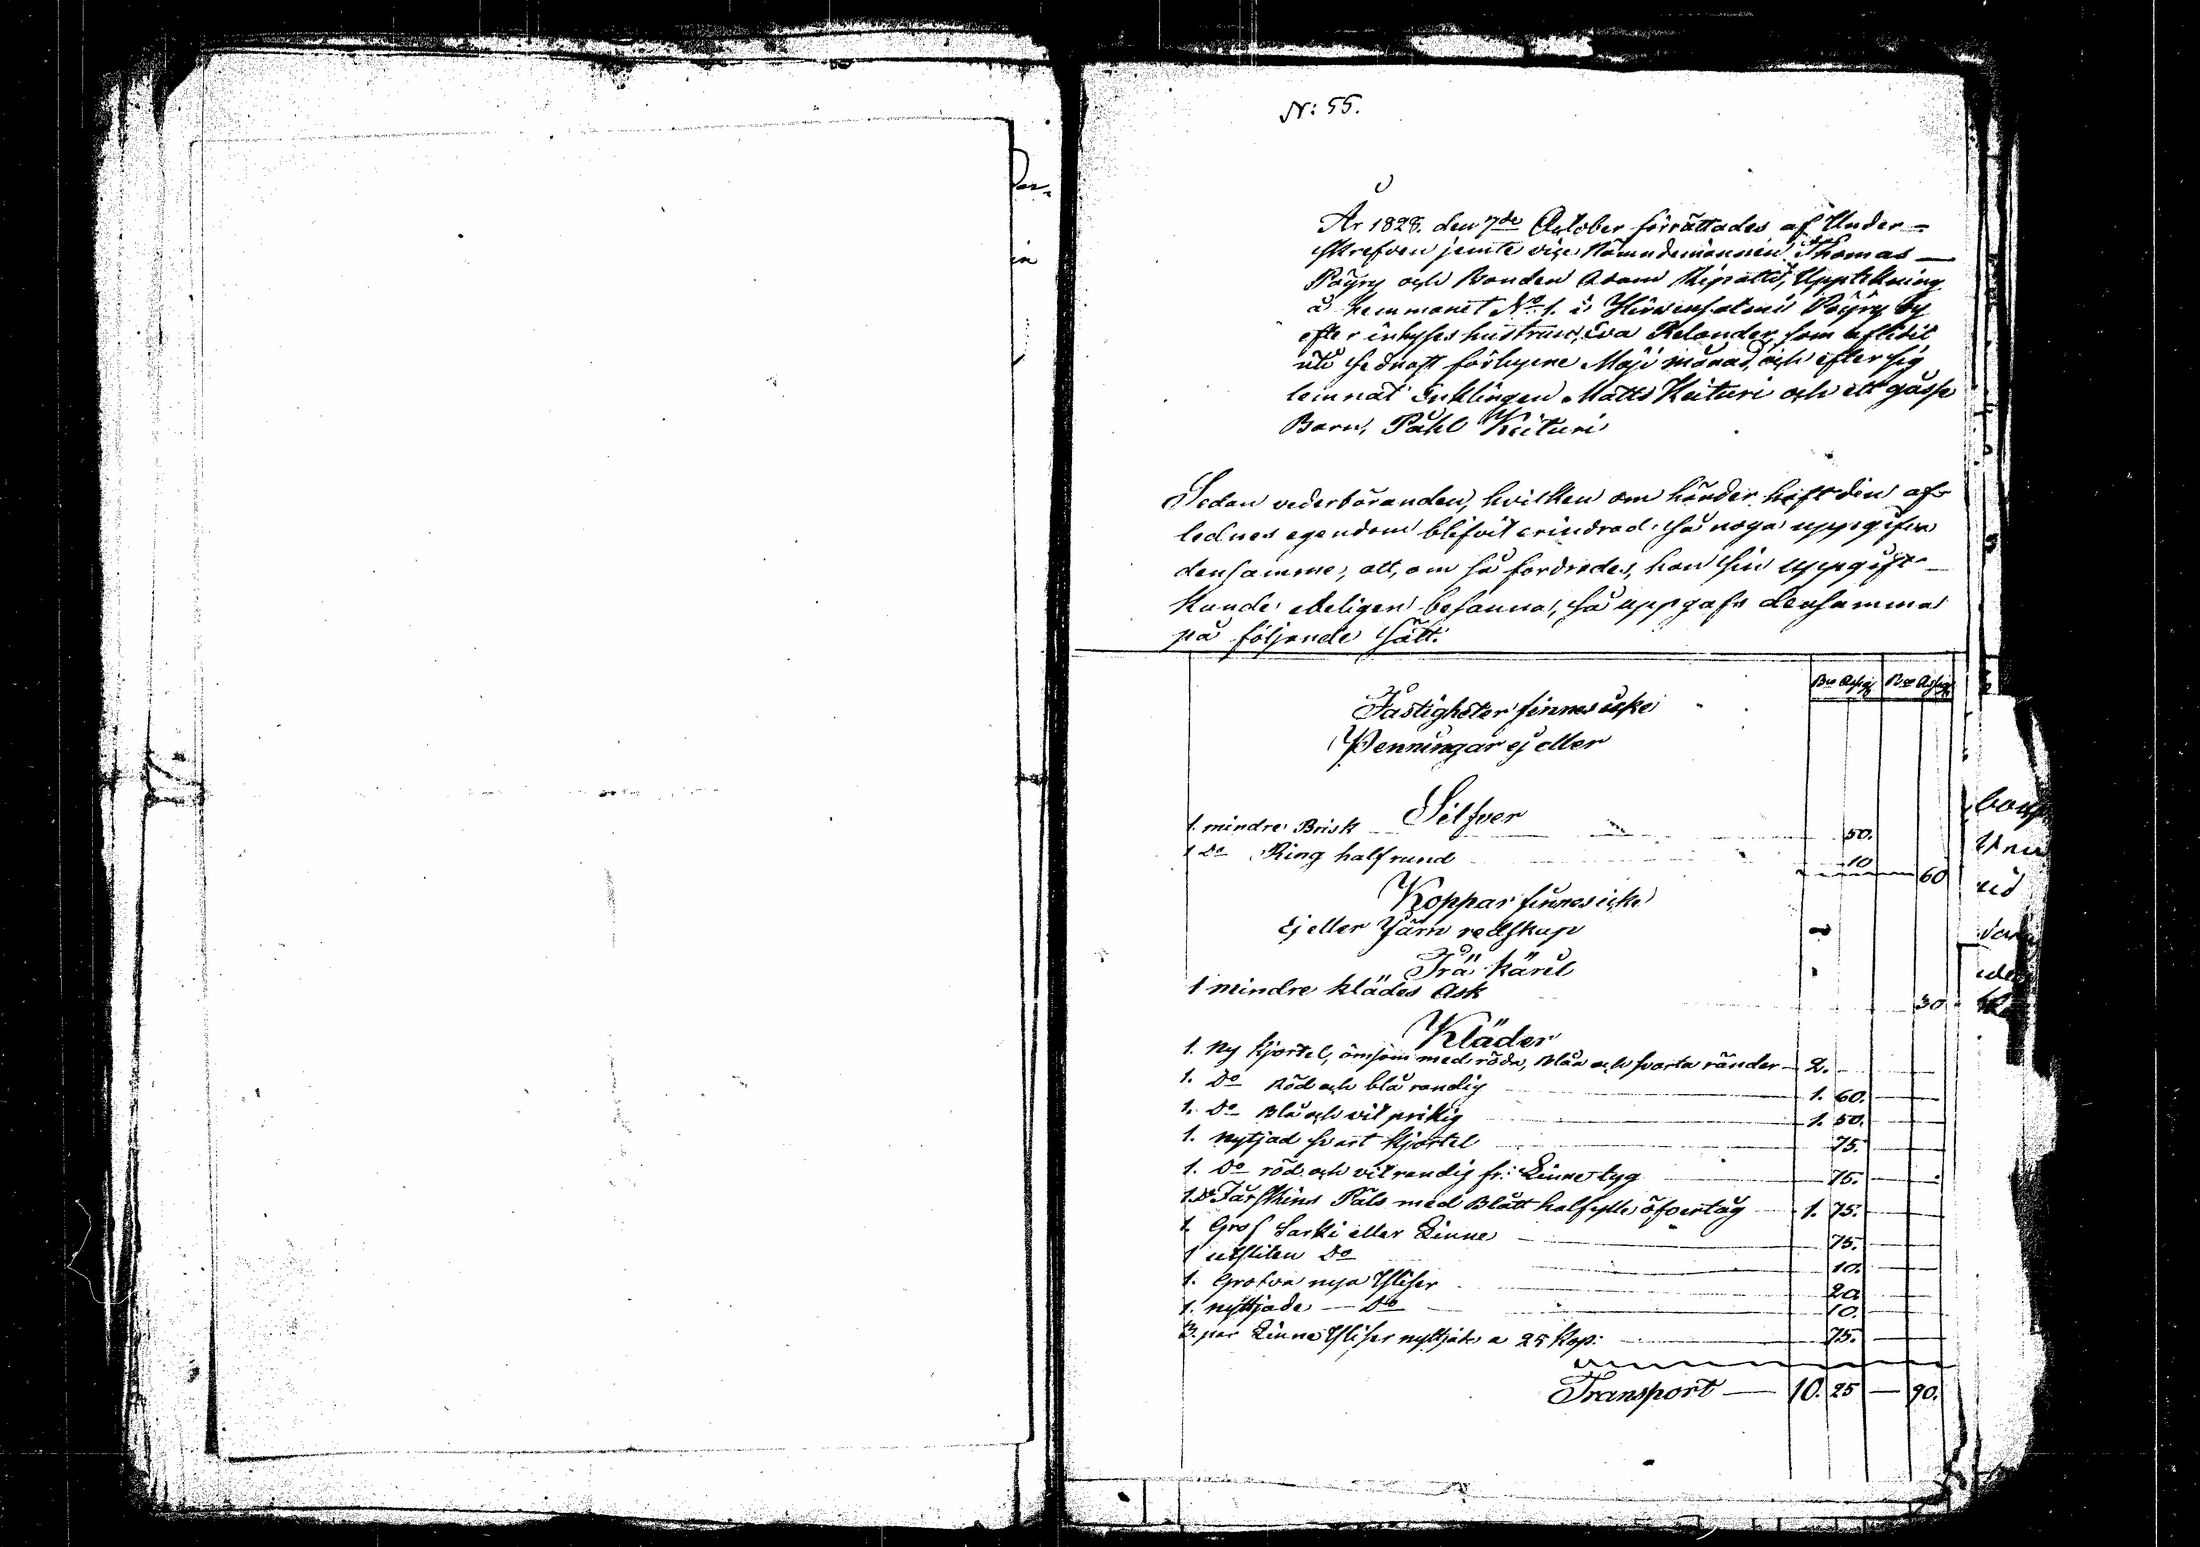 N: 55.
År 1828. den 7de October förrättades af Under-
skrefven jemte vice Nämndemannen Thomas
Påyry och Bonden Adam Upptekning
å Hemmanet No 1. i Hirvensalmi Påyry by
efter inhyses hustrun Eva Relander som aflidit
uti sednast förlupne Maji månad och efter sig
lemnat Enklingen Matts Keituri och ett gåsse
Barn, Påhl Keituri
Sedan vederböranden, hvilken om händer haft den af-
lednes egendom blifvit erindrad, så noga uppgifva
densamme, att, om så fordrades, han sin uppgift
kunde edeligen besanna, så uppgafs densamma
på följande sätt:
Fastigheter finnes icke
Penningar ej eller
Silfver
1. mindre Brisk 50.
1 Do Ring half rund 10 60
Koppar finnes icke
Ej eller Järn redskap
Trä käril
1 mindre klädes Ask 30
Kläder
1. Ny kjortel, ömsom med röda, blåa och svarta ränder 2.
1. Do Röd och blå randig 1. 60.
1. Do Blå och vit prikig 1. 50.
1. nytjad svart kjortel 75.
1. Do röd och vit randig fr: Linne tyg 75.
1. Do Får Skins Päls med Blått halfylle öfvertåg 1. 75.
1. Grof Sarki eller Linne 75.
1 utsliten Do 10.
1. Grofva nya 20
1. nyttjade Do 10.
3. par Linne nyttjade a 25 Kop: 75.
Transport 10. 25 90.